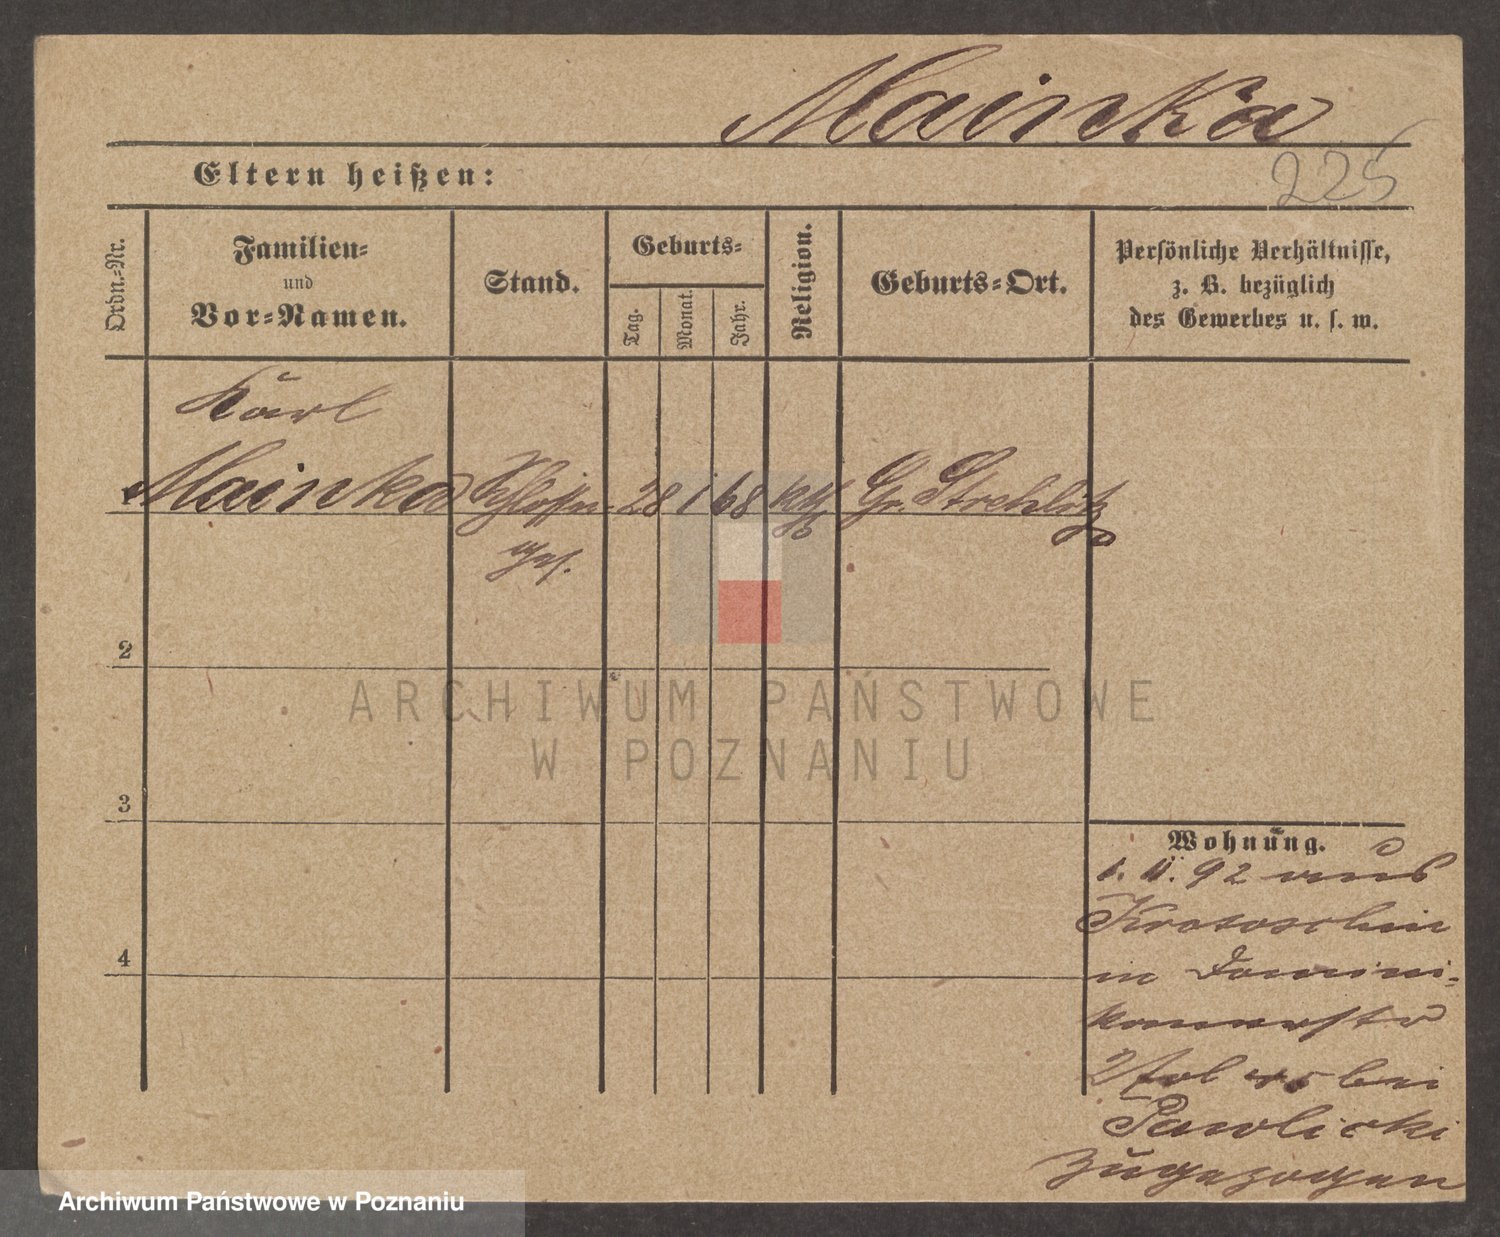 Mainka
225
Eltern heißen:
Ordn.-Nr.
Familien-
und
Vor-Namen.
Stand.
Geburts-
Tag.
Monat.
Jahr.
Religion.
Geburts-Ort.
Persönliche Verhältnisse,
z. B. bezüglich
des Gewerbes u. s. w.
Karl
Mainka Schlosser- 28 1 68 kth Gr. Strehlitz
ges.
2
3
4
Wohnung.
1. 11. 92 aus
Krotoschin
in Domini-
kanerstr
2 bei
Pawlicki
zugezogen
ARCHIWUM PAŃSTWOWE
W POZNANIU
Archiwum Państwowe w Poznaniu